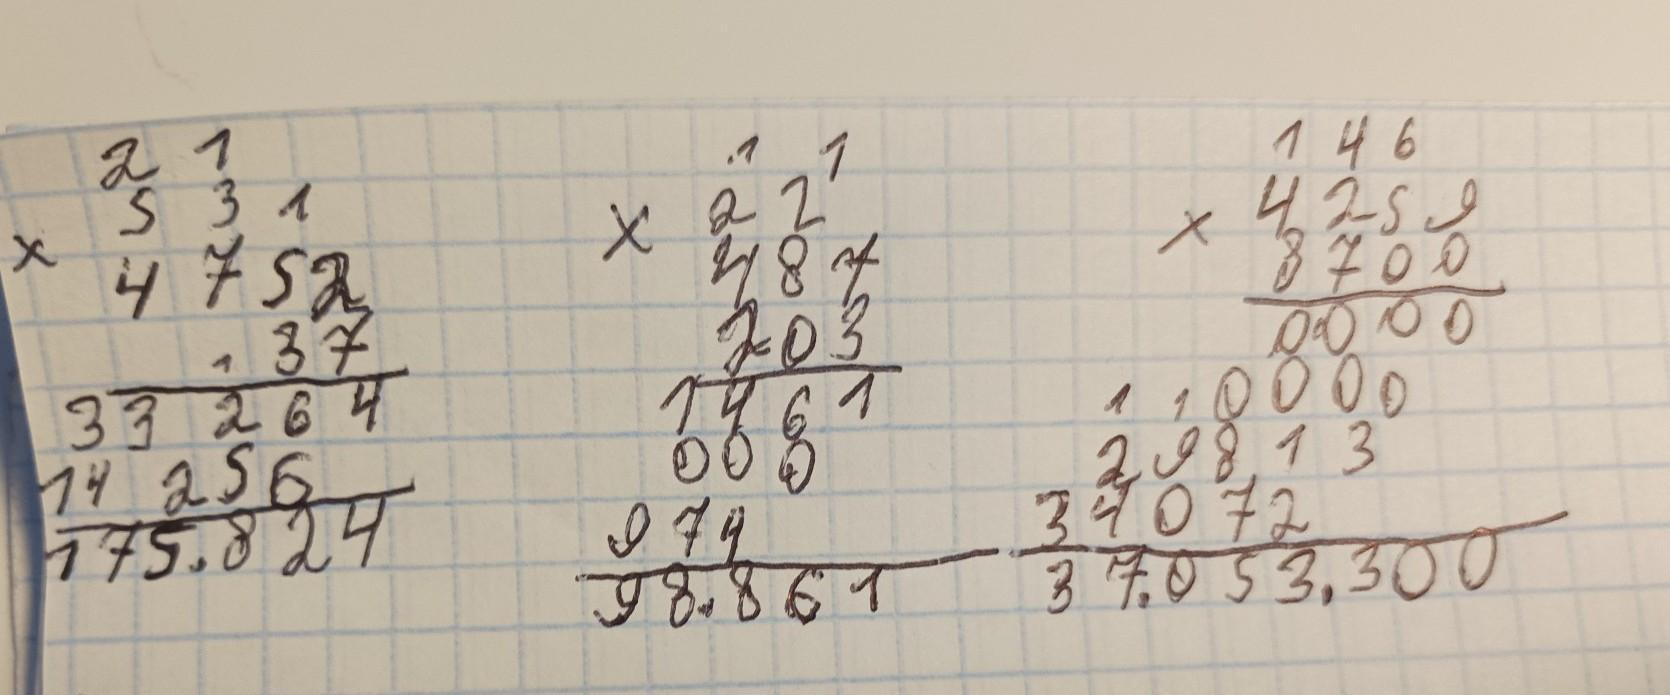 2 1
5 3 1
x 4 7 5 2
3 7
3 3 2 6 4
1 4 2 5 6
1 7 5.8 2 4
1 1
x 2 2
4 8 7
2 0 3
1 4 6 1
0 0 0
9 7 4
9 8.8 6 1
1 4 6
x 4 2 5 9
8 7 0 0
0 0 0 0
1 1 0 0 0 0
2 9 8 1 3
3 4 0 7 2
3 7.0 5 3.3 0 0